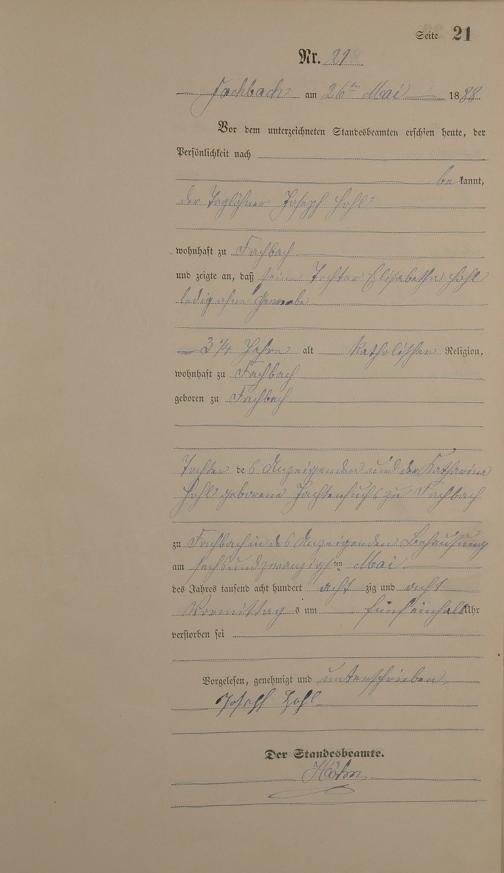 Seite 21
Nr. 21
Fachbach am 26ten Mai 1888
Vor dem unterzeichneten Standesbeamten erschien heute, der
Persönlichkeit nach
bekannt,
der Taglöhner Joseph Hohl
wohnhaft zu Fachbach
und zeigte an, daß seine Tochter Elisabetha Hohl
ledig ohne Gewerbe
3 1/4 Jahre alt katholischer Religion,
wohnhaft zu Fachbach
geboren zu Fachbach
Tochter des Anzeigenden und der Katharina
Hohl geborene zu Fachbach
zu Fachbach in des Anzeigenden Behausung
am sechsundzwanzigsten Mai
des Jahres tausend acht hundert achtzig und acht
Vormittags um fünf einhalb Uhr
verstorben sei
Vorgelesen, genehmigt und unterschrieben
Joseph Hohl
Der Standesbeamte.